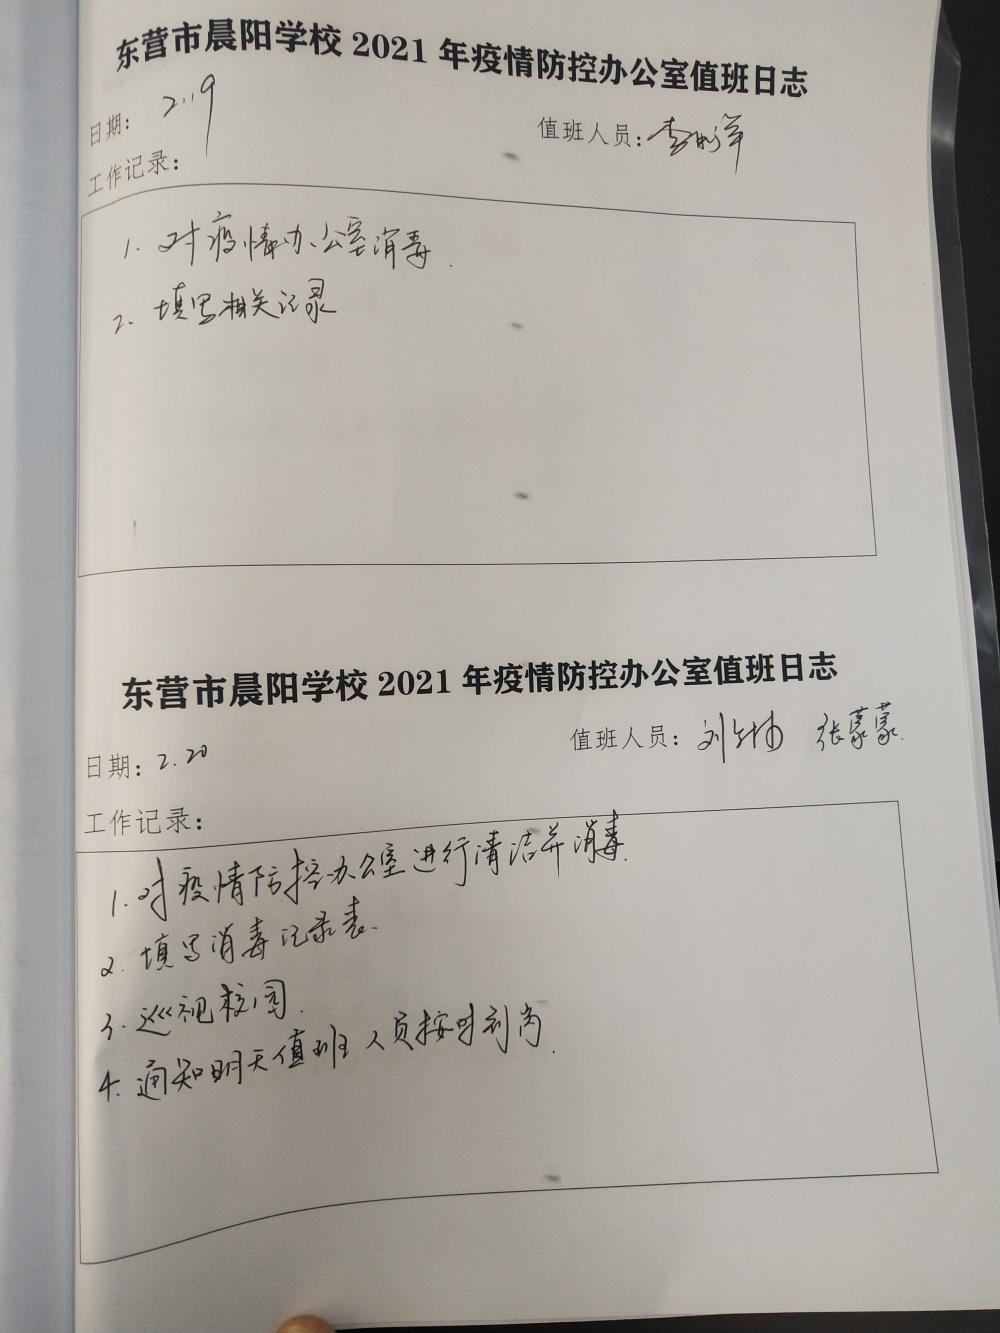 东营市晨阳学校 2021 年疫情防控办公室值班日志
日期： 2.19
值班人员：李
工作记录：
1. 对疫情办公室消毒.
2. 填写相关记录
东营市晨阳学校 2021 年疫情防控办公室值班日志
日期：2.20
值班人员：刘 张蒙蒙.
工作记录：
1. 对疫情防控办公室进行清洁并消毒.
2. 填写消毒记录表.
3. 巡视校园.
4. 通知明天值班人员按时到岗.